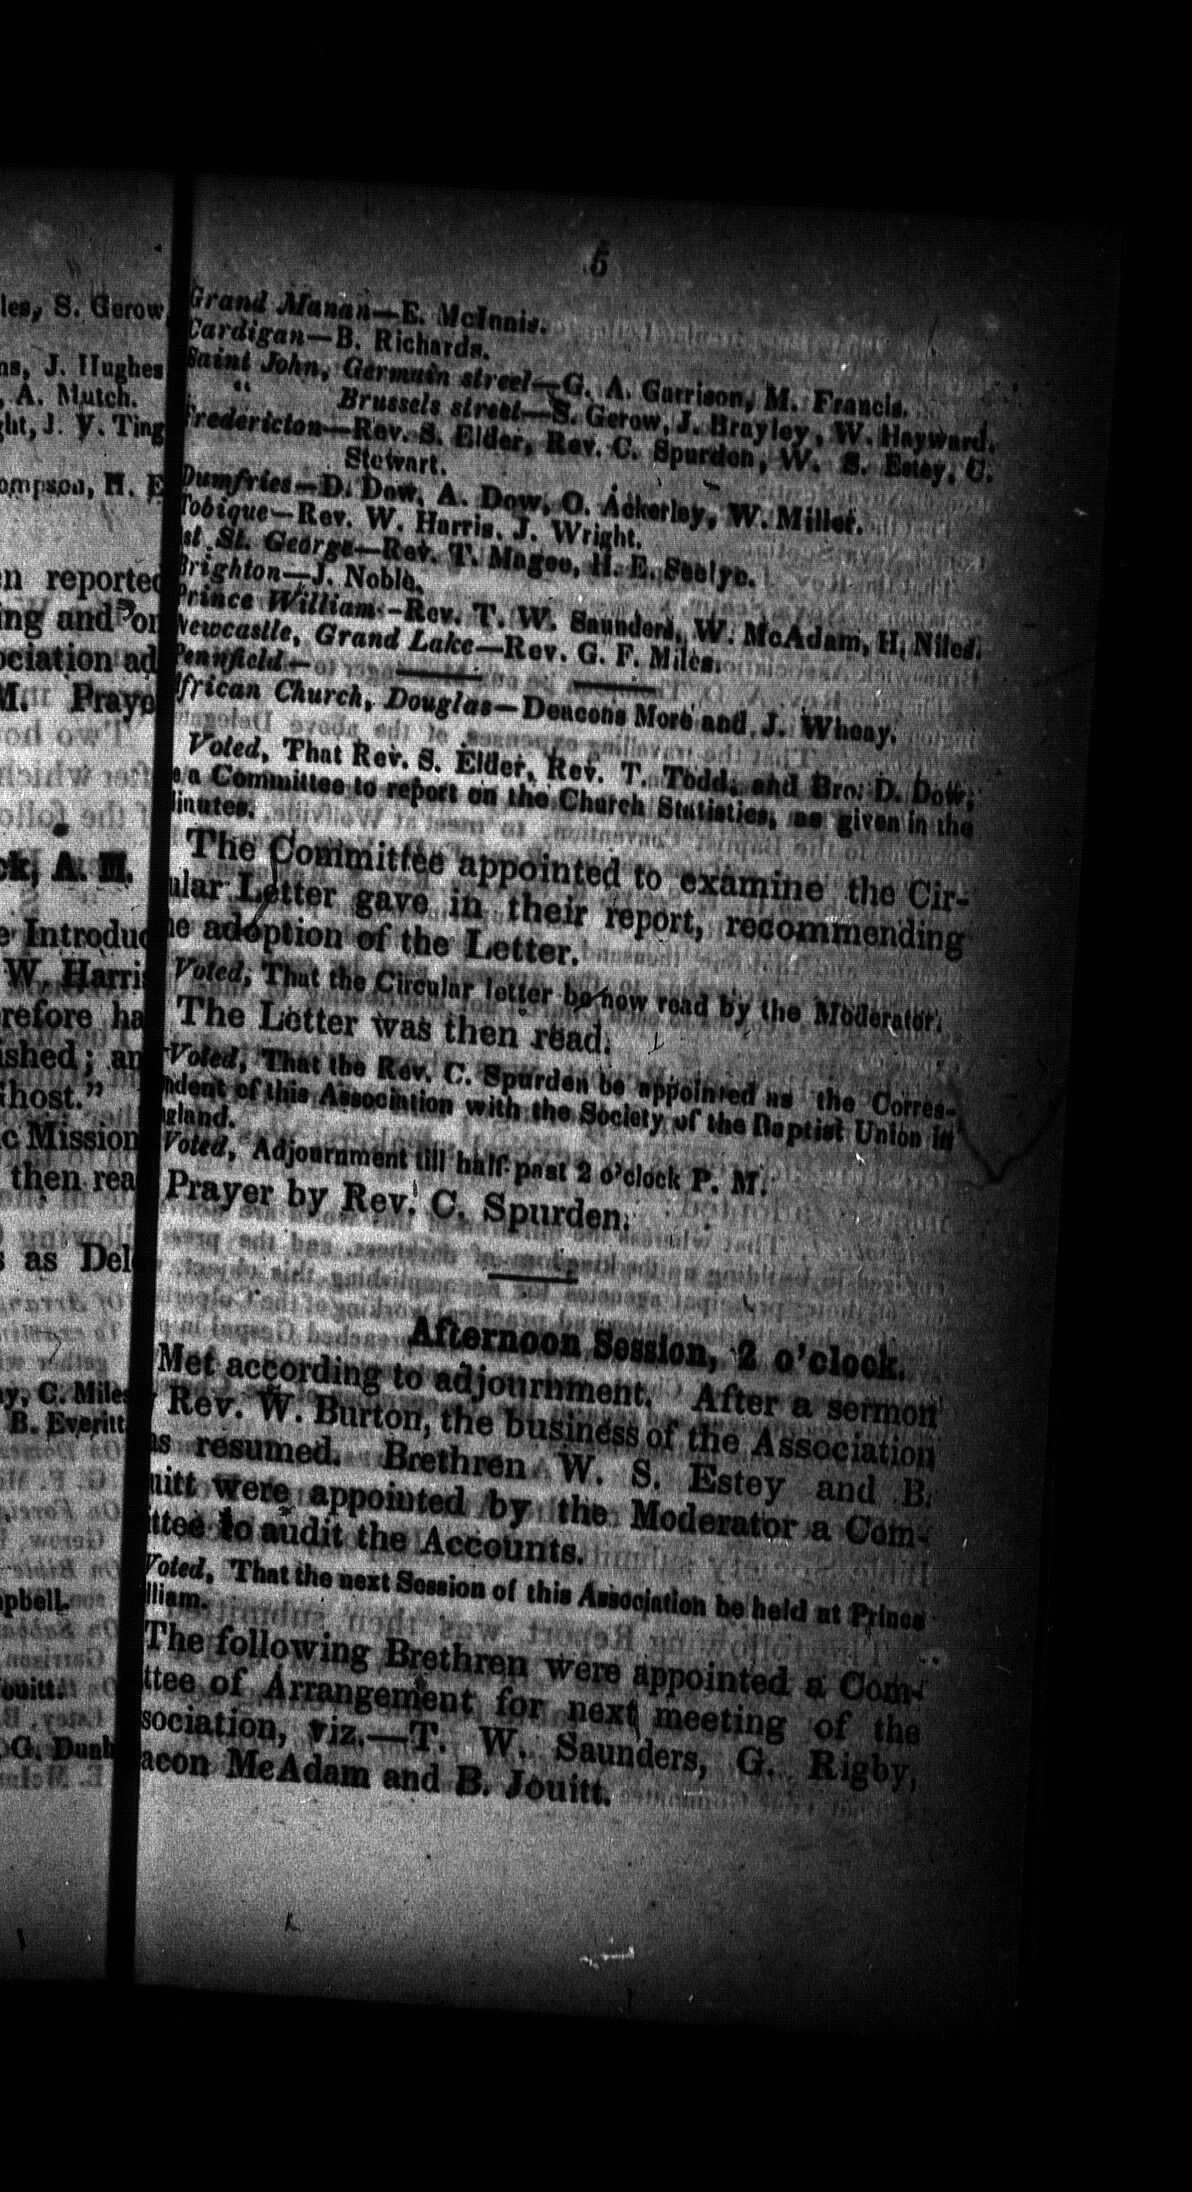 les, S. Gerow,
ns, J. Hughes
, A. Mutch.
ght, J. V. Ting
ompson, H. E
en reported
ing and on
ociation ad
M. Praye
ck, A. M.
e Introduc
W. Harris
refore ha
ished; an
Ghost.”
c Mission
then rea
s as Del
ay, C. Miles
B. Everitt
pbell.
ouitt.
G. Dunb
5
Grand Manan—E. McInnis.
Cardigan—B. Richards.
Saint John, Germain street—G. A. Garrison, M. Francis.
“ Brussels street—S. Gerow, J. Brayley, W. Hayward.
Fredericton—Rev. S. Elder, Rev. C. Spurden, W. S. Estey, C.
Stewart.
Dumfries—D. Dow, A. Dow, O. Ackerley, W. Miller.
Tobique—Rev. W. Harris, J. Wright.
1st St. George—Rev. T. Magee, H. E. Seelye.
Brighton—J. Noble.
Prince William—Rev. T. W. Saunders, W. McAdam, H. Niles.
Newcastle, Grand Lake—Rev. G. F. Miles.
Pennfield—
African Church, Douglas—Deacons More and J. Wheay.
Voted, That Rev. S. Elder, Rev. T. Todd, and Bro. D. Dow,
e a Committee to report on the Church Statistics, as given in the
inutes.
The Committee appointed to examine the Cir-
ular Letter gave in their report, recommending
he adoption of the Letter.
Voted, That the Circular letter be now read by the Moderator.
The Letter was then read.
Voted, That the Rev. C. Spurden be appointed as the Corres-
ndent of this Association with the Society of the Baptist Union in
gland.
Voted, Adjournment till half-past 2 o’clock P. M.
Prayer by Rev. C. Spurden.
Afternoon Session, 2 o’clock.
Met according to adjournment. After a sermon
Rev. W. Burton, the business of the Association
as resumed. Brethren W. S. Estey and B.
uitt were appointed by the Moderator a Com-
ittee to audit the Accounts.
Voted, That the next Session of this Association be held at Prince
lliam.
The following Brethren were appointed a Com-
ttee of Arrangement for next meeting of the
sociation, viz.—T. W. Saunders, G. Rigby,
acon McAdam and B. Jouitt.